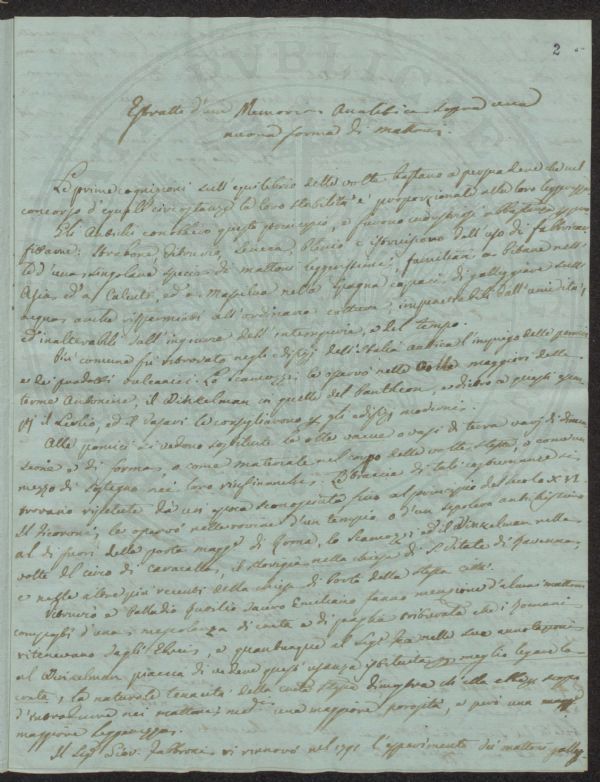 2
Estratto d'una Memoria Analitica sopra una
nuova forma di mattoni.
Le prime cognizioni sull'equilibrio delle volte bastano a persuadere che nel
concorso d'eguali circostanze la loro stabilità è proporzionale alla loro leggerezza.
Gli Antichi conobbero questo principio, e furono industriosi abbastanza per
Strabone, Vitruvio, Seneca, Plinio c'istruiscono dell'uso di fabbricare
d'una singolare specie di mattoni leggerissimi, familiari a Pitane nell'
Asia, ed a Calento, ed a Massilua nella Spagna capaci di galleggiare sull'
acqua, anche risparmiati all'ordinaria cottura, impenetrabili dall'umidità,
ed inalterabili dall'ingiurie dell' e del tempo.
Più comune fu ritrovato negli edifizj dell'Italia antica l'impiego delle pomici
e dei prodotti vulcanici. Lo Scamozzi le osservò nelle volte maggiori delle
terme Antonine, il Winkelman in quelle del Pantheon, e dietro a questi
il ed il Vasari le consigliavano per gli edifizj moderni.
Alle pomici si vedono sostituite le olle vacue o vasi di terra varj di dimen
sione e di forma, o come materiale nel corpo delle volte stesse, o come un
mezzo di sostegno nei loro rinfianchi. Le traccie di tali costumanze si
trovano ripetute da un' epoca sconosciuta fino al principio del secolo XVI.
Il Ficoroni le osservò nelle rovine d'un tempio o d'un sepolcro antichissimo
al di fuori della porta magg.e di Roma, lo Scamozzi ed il Winkelman nelle
volte del circo di Caracalla, il nella chiesa di S. Vitale di Ravenna,
e nelle altre più recenti della chiesa di Porto della stessa città.
Vitruvio e Palladio Rutilio Tauro Emiliano fanno mensione d'alcuni mattoni
composti d'una mescolanza di creta e di paglia triturata che i Romani
ritenevano dagli Ebrei, e quantunque al Sig.r Fea nelle sue annotazioni
al Winkelman piaccia di vedere quest'usanza istituita per meglio legare la
creta, la naturale tenacità della creta stessa dimostra ch'ella
d'introdurre nei mattoni una maggiore porosità, e però una
maggiore leggerezza.
Il Sig.r Giov. Fabbroni vi rinnovò nel 1791 l'esperimento dei mattoni galleg